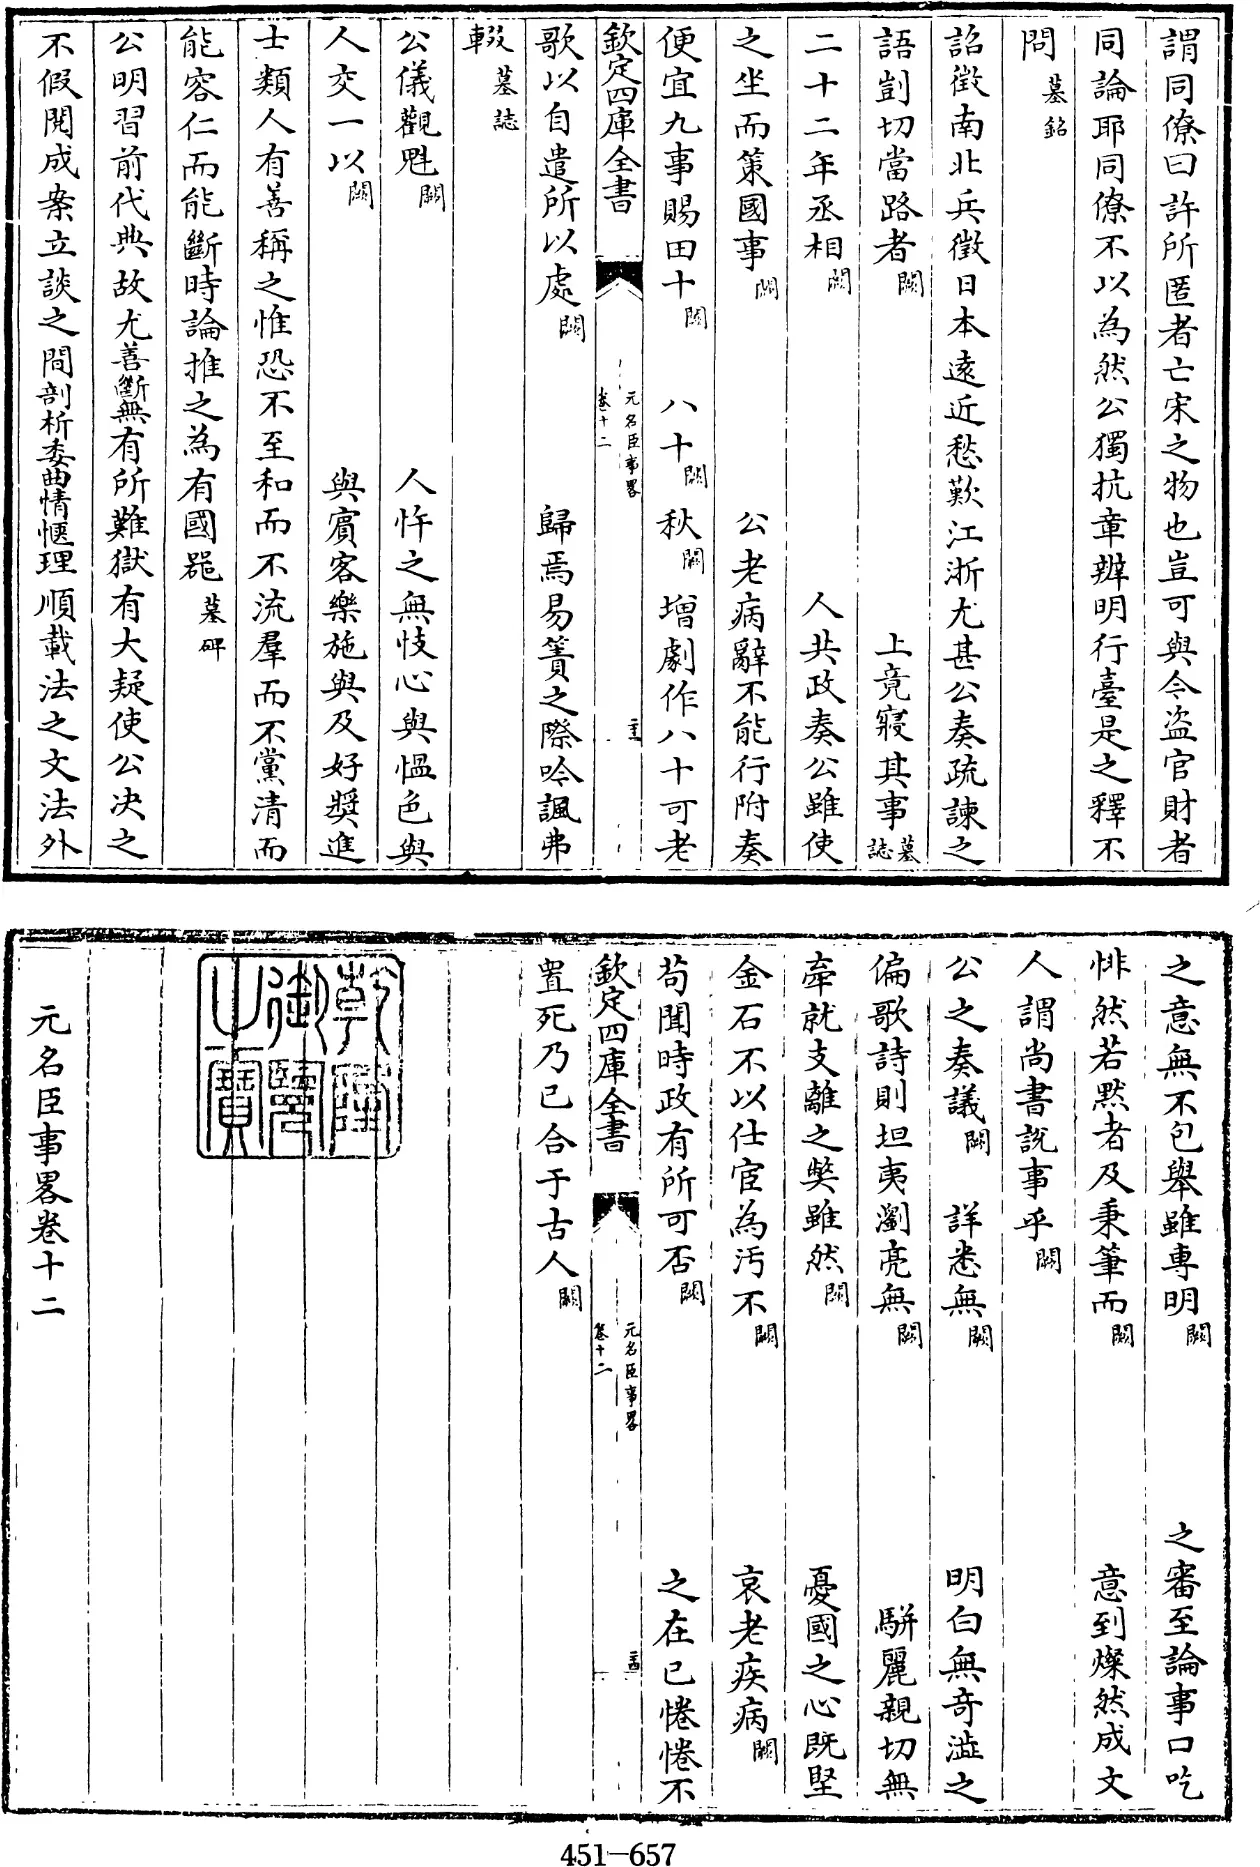 謂同僚曰許所匿者亡宋之物也豈可與令盗官財者
同論耶同僚不以為然公獨抗章辨明行臺是之釋不
問墓銘
詔徵南北兵徵日本遠近愁歎江浙尤甚公奏疏諫之
語剴切當路者闕上竟寢其事墓誌
二十二年丞相闕人共政奏公雖使
之坐而策國事闕公老病辭不能行附奏
便宜九事賜田十闕八十闕秋闕增劇作八十可老
欽定四庫全書
元名臣事畧
卷十二
歌以自遣所以處闕歸焉易簀之際吟諷弗
輟墓誌
公儀觀魁闕人忤之無忮心與愠色與
人交一以闕與賓客樂施與及好奬進
士類人有善稱之惟恐不至和而不流羣而不黨清而
能容仁而能斷時論推之為有國器墓碑
公明習前代典故尤善斷無有所難獄有大疑使公决之
不假閱成案立談之間剖析委曲情愜理順載法之文法外
之意無不包舉雖專明闕之審至論事口吃
悱然若黙者及秉筆而闕意到燦然成文
人謂尚書説事乎闕
公之奏議闕詳悉無闕明白無奇澁之
偏歌詩則坦夷瀏亮無闕駢麗親切無
牽就支離之獘雖然闕憂國之心既堅
金石不以仕宦為汚不闕哀老疾病闕
苟聞時政有所可否闕之在已惓惓不
欽定四庫全書
元名臣事畧
卷十二
置死乃已合于古人闕
乾隆御覽之寶
元名臣事畧卷十二
451-657